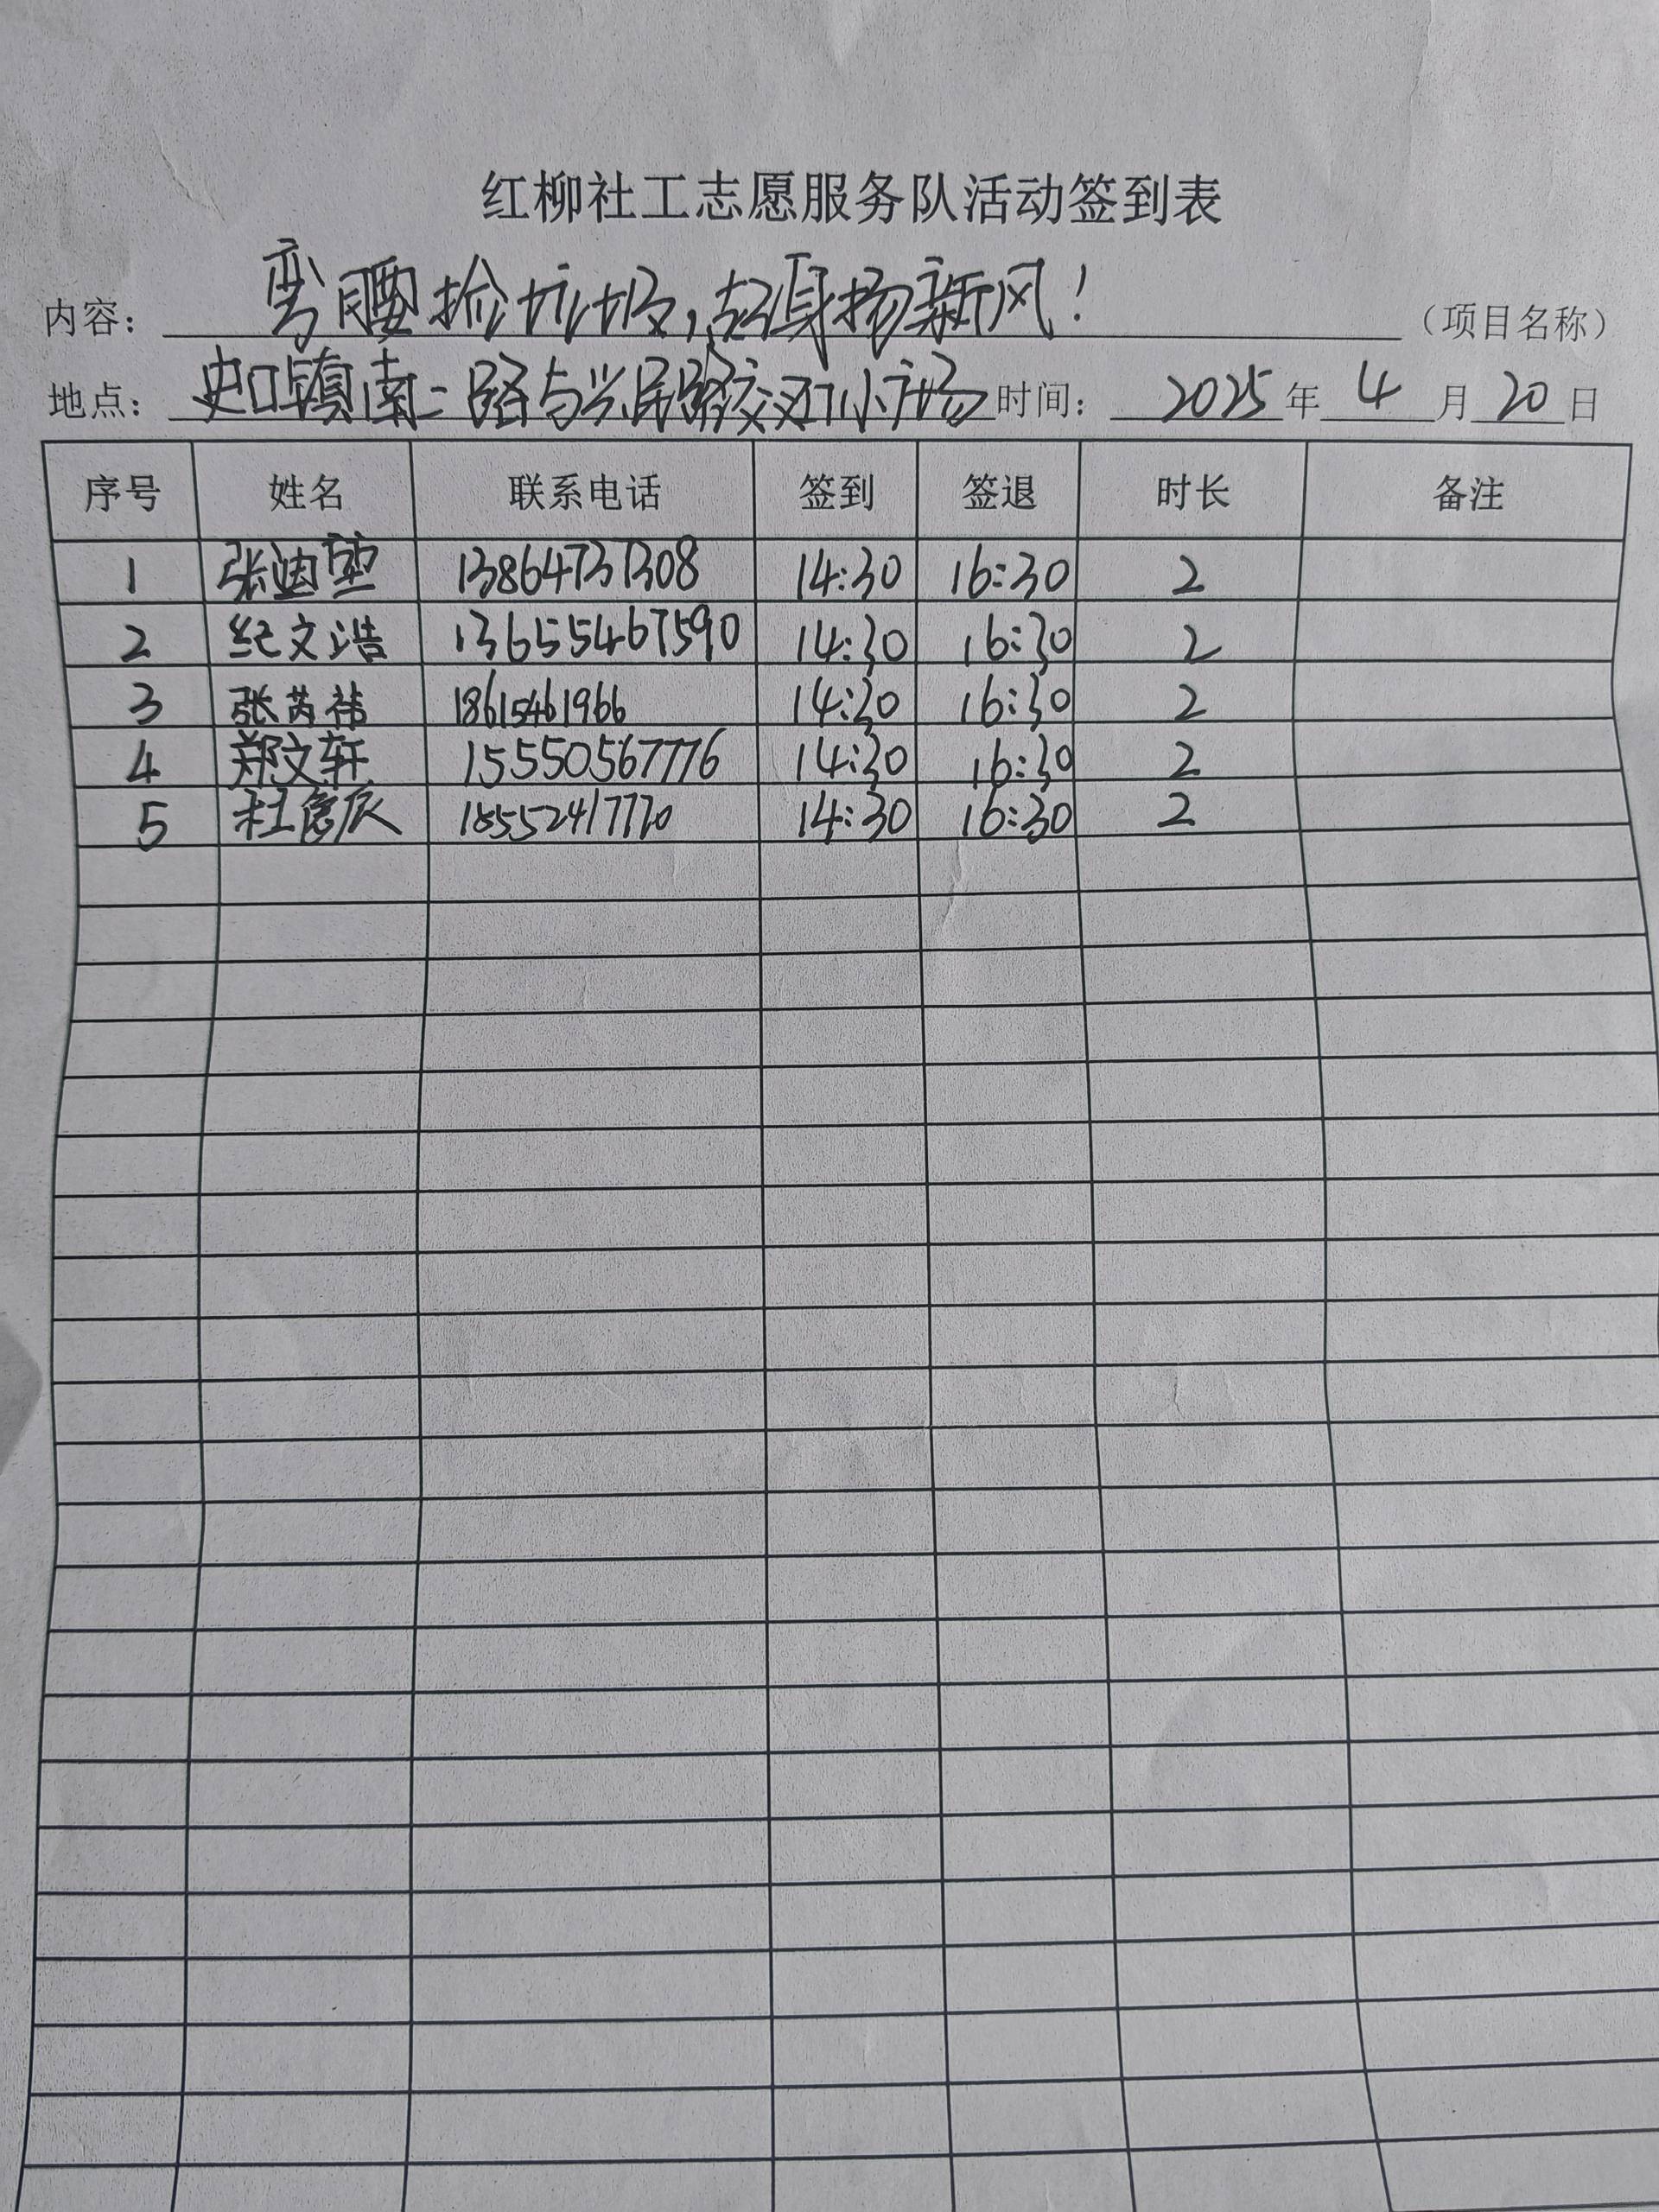 红柳社工志愿服务队活动签到表
内容： 弯腰捡垃圾，起身扬新风！ （项目名称）
地点： 史口镇南二路与兴民路交叉口小广场 时间： 2025 年 4 月 20 日
序号 姓名 联系电话 签到 签退 时长 备注
1 张迪 13864737308 14:30 16:30 2
2 纪文浩 13655467590 14:30 16:30 2
3 张芮祎 18615461966 14:30 16:30 2
4 郑文轩 15550567776 14:30 16:30 2
5 杜 辰 18552417770 14:30 16:30 2